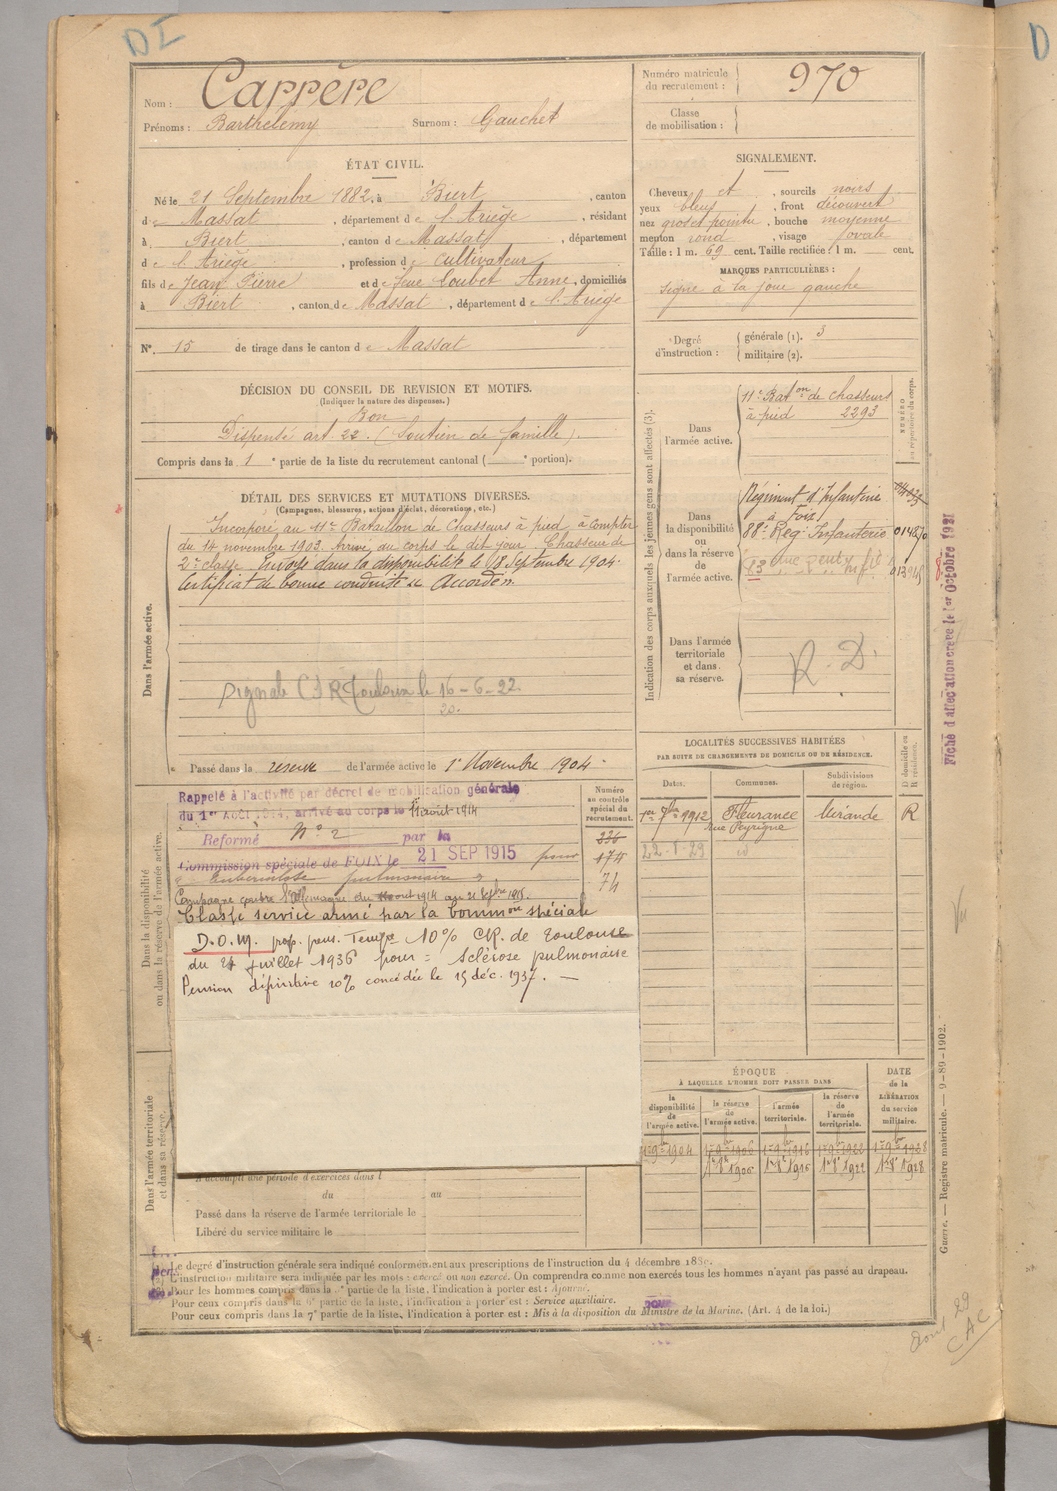 DI
Nom : Carrère
Prénoms : Barthélemy Surnom : Gauchet
ÉTAT CIVIL.
Né le 21 Septembre 1882, à Biert , canton
de Massat , département de l'Ariège , résidant
à Biert , canton de Massat , département
de l'Ariège , profession de cultivateur
fils de Jean Pierre et de feue Loubet Anne, domiciliés
à Biert , canton de Massat , département de l'Ariège
N° 15 de tirage dans le canton de Massat
DÉCISION DU CONSEIL DE REVISION ET MOTIFS.
(Indiquer la nature des dispenses.)
Bon
Dispensé art. 22. (Soutien de famille).
Compris dans la 1e partie de la liste du recrutement cantonal ( e portion).
DÉTAIL DES SERVICES ET MUTATIONS DIVERSES.
(Campagnes, blessures, actions d'éclat, décorations, etc.)
Dans l'armée active.
Incorporé au 11e Bataillon de Chasseurs à pied à compter
du 14 novembre 1903. Arrivé au corps le dit jour. Chasseur de
2e classe. Envoyé dans la disponibilité le 18 Septembre 1904.
Certificat de bonne conduite "Accordé".
Signalé Toulouse le 16-6-22
20.
Passé dans la réserve de l'armée active le 1er Novembre 1904.
Dans la disponibilité
ou dans la réserve de l'armée active.
Rappelé à l'activité par décret de mobilisation générale
du 1er Août 1914, arrivé au corps le 11 août 1914
Réformé N° 2 par la
Commission spéciale de FOIX le 21 SEP 1915 pour
"tuberculose pulmonaire"
Campagne contre l'Allemagne du août 1914 au 21 Sepbre 1915.
Classé service armé par la Common spéciale
D.O.M. prop. pens. Tempre 10% CR. de Toulouse
du 24 juillet 1936 pour : sclérose pulmonaire
Pension définitive 10% concédée le 15 déc. 1937. —
Numéro
au contrôle
spécial du
recrutement.
236
174
74
Dans l'armée territoriale
et dans sa réserve.
A accompli une période d'exercices dans l
du au
Passé dans la réserve de l'armée territoriale le
Libéré du service militaire le
Numéro matricule
du recrutement : 970
Classe
de mobilisation :
SIGNALEMENT.
Cheveux et , sourcils noirs
yeux bleus , front découvert
nez gros et pointu , bouche moyenne
menton rond , visage ovale
Taille : 1 m. 69 cent. Taille rectifiée : 1 m. cent.
MARQUES PARTICULIÈRES :
Signe à la joue gauche
Degré
d'instruction :
générale (1). 3
militaire (2).
Indication des corps auxquels les jeunes gens sont affectés (3).
NUMÉRO
au répertoire du corps.
Dans
l'armée active.
11e Baton de chasseurs
à pied 2293
Dans
la disponibilité
ou
dans la réserve
de
l'armée active.
Régiment d'Infanterie
à Foix
88e Reg. Infanterie
83
Dans l'armée
territoriale
et dans
sa réserve.
R. D.
Fiche d'affectation créée le 1er Octobre 1921
LOCALITÉS SUCCESSIVES HABITÉES
PAR SUITE DE CHANGEMENTS DE DOMICILE OU DE RÉSIDENCE.
Dates. Communes. Subdivisions
de région. D domicile ou
R résidence.
1er 7bre 1912 Fleurance Mirande R
rue Peyrigne
22-1-29 id
ÉPOQUE
À LAQUELLE L'HOMME DOIT PASSER DANS
la
disponibilité
de
l'armée active.
la réserve
de
l'armée active.
l'armée
territoriale.
la réserve
de
l'armée
territoriale.
DATE
de la
LIBÉRATION
du service
militaire.
1er 9bre 1904 1er 9bre 1906 1er 9bre 1916 1er 9bre 1922 1er 9bre 1928
1er 8e 1906 1er 8e 1916 1er 8e 1922 1er 8e 1928
Guerre. — Registre matricule. — 9-89-1902.
Le degré d'instruction générale sera indiqué conformément aux prescriptions de l'instruction du 4 décembre 1889.
L'instruction militaire sera indiquée par les mots : exercé ou non exercé. On comprendra comme non exercés tous les hommes n'ayant pas passé au drapeau.
Pour les hommes compris dans la partie de la liste, l'indication à porter est : Ajourné.
Pour ceux compris dans la 6e partie de la liste, l'indication à porter est : Service auxiliaire.
Pour ceux compris dans la 7e partie de la liste, l'indication à porter est : Mis à la disposition du Ministre de la Marine. (Art. 4 de la loi.)
29
CAC
D